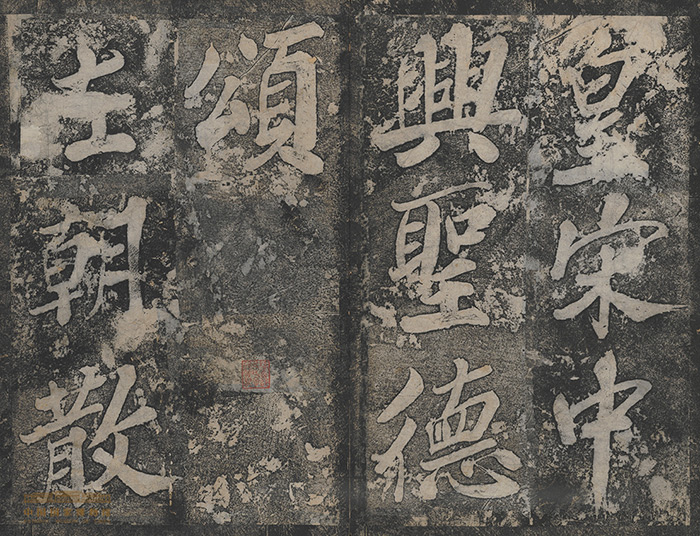 皇宋中
興聖德
頌
左朝散